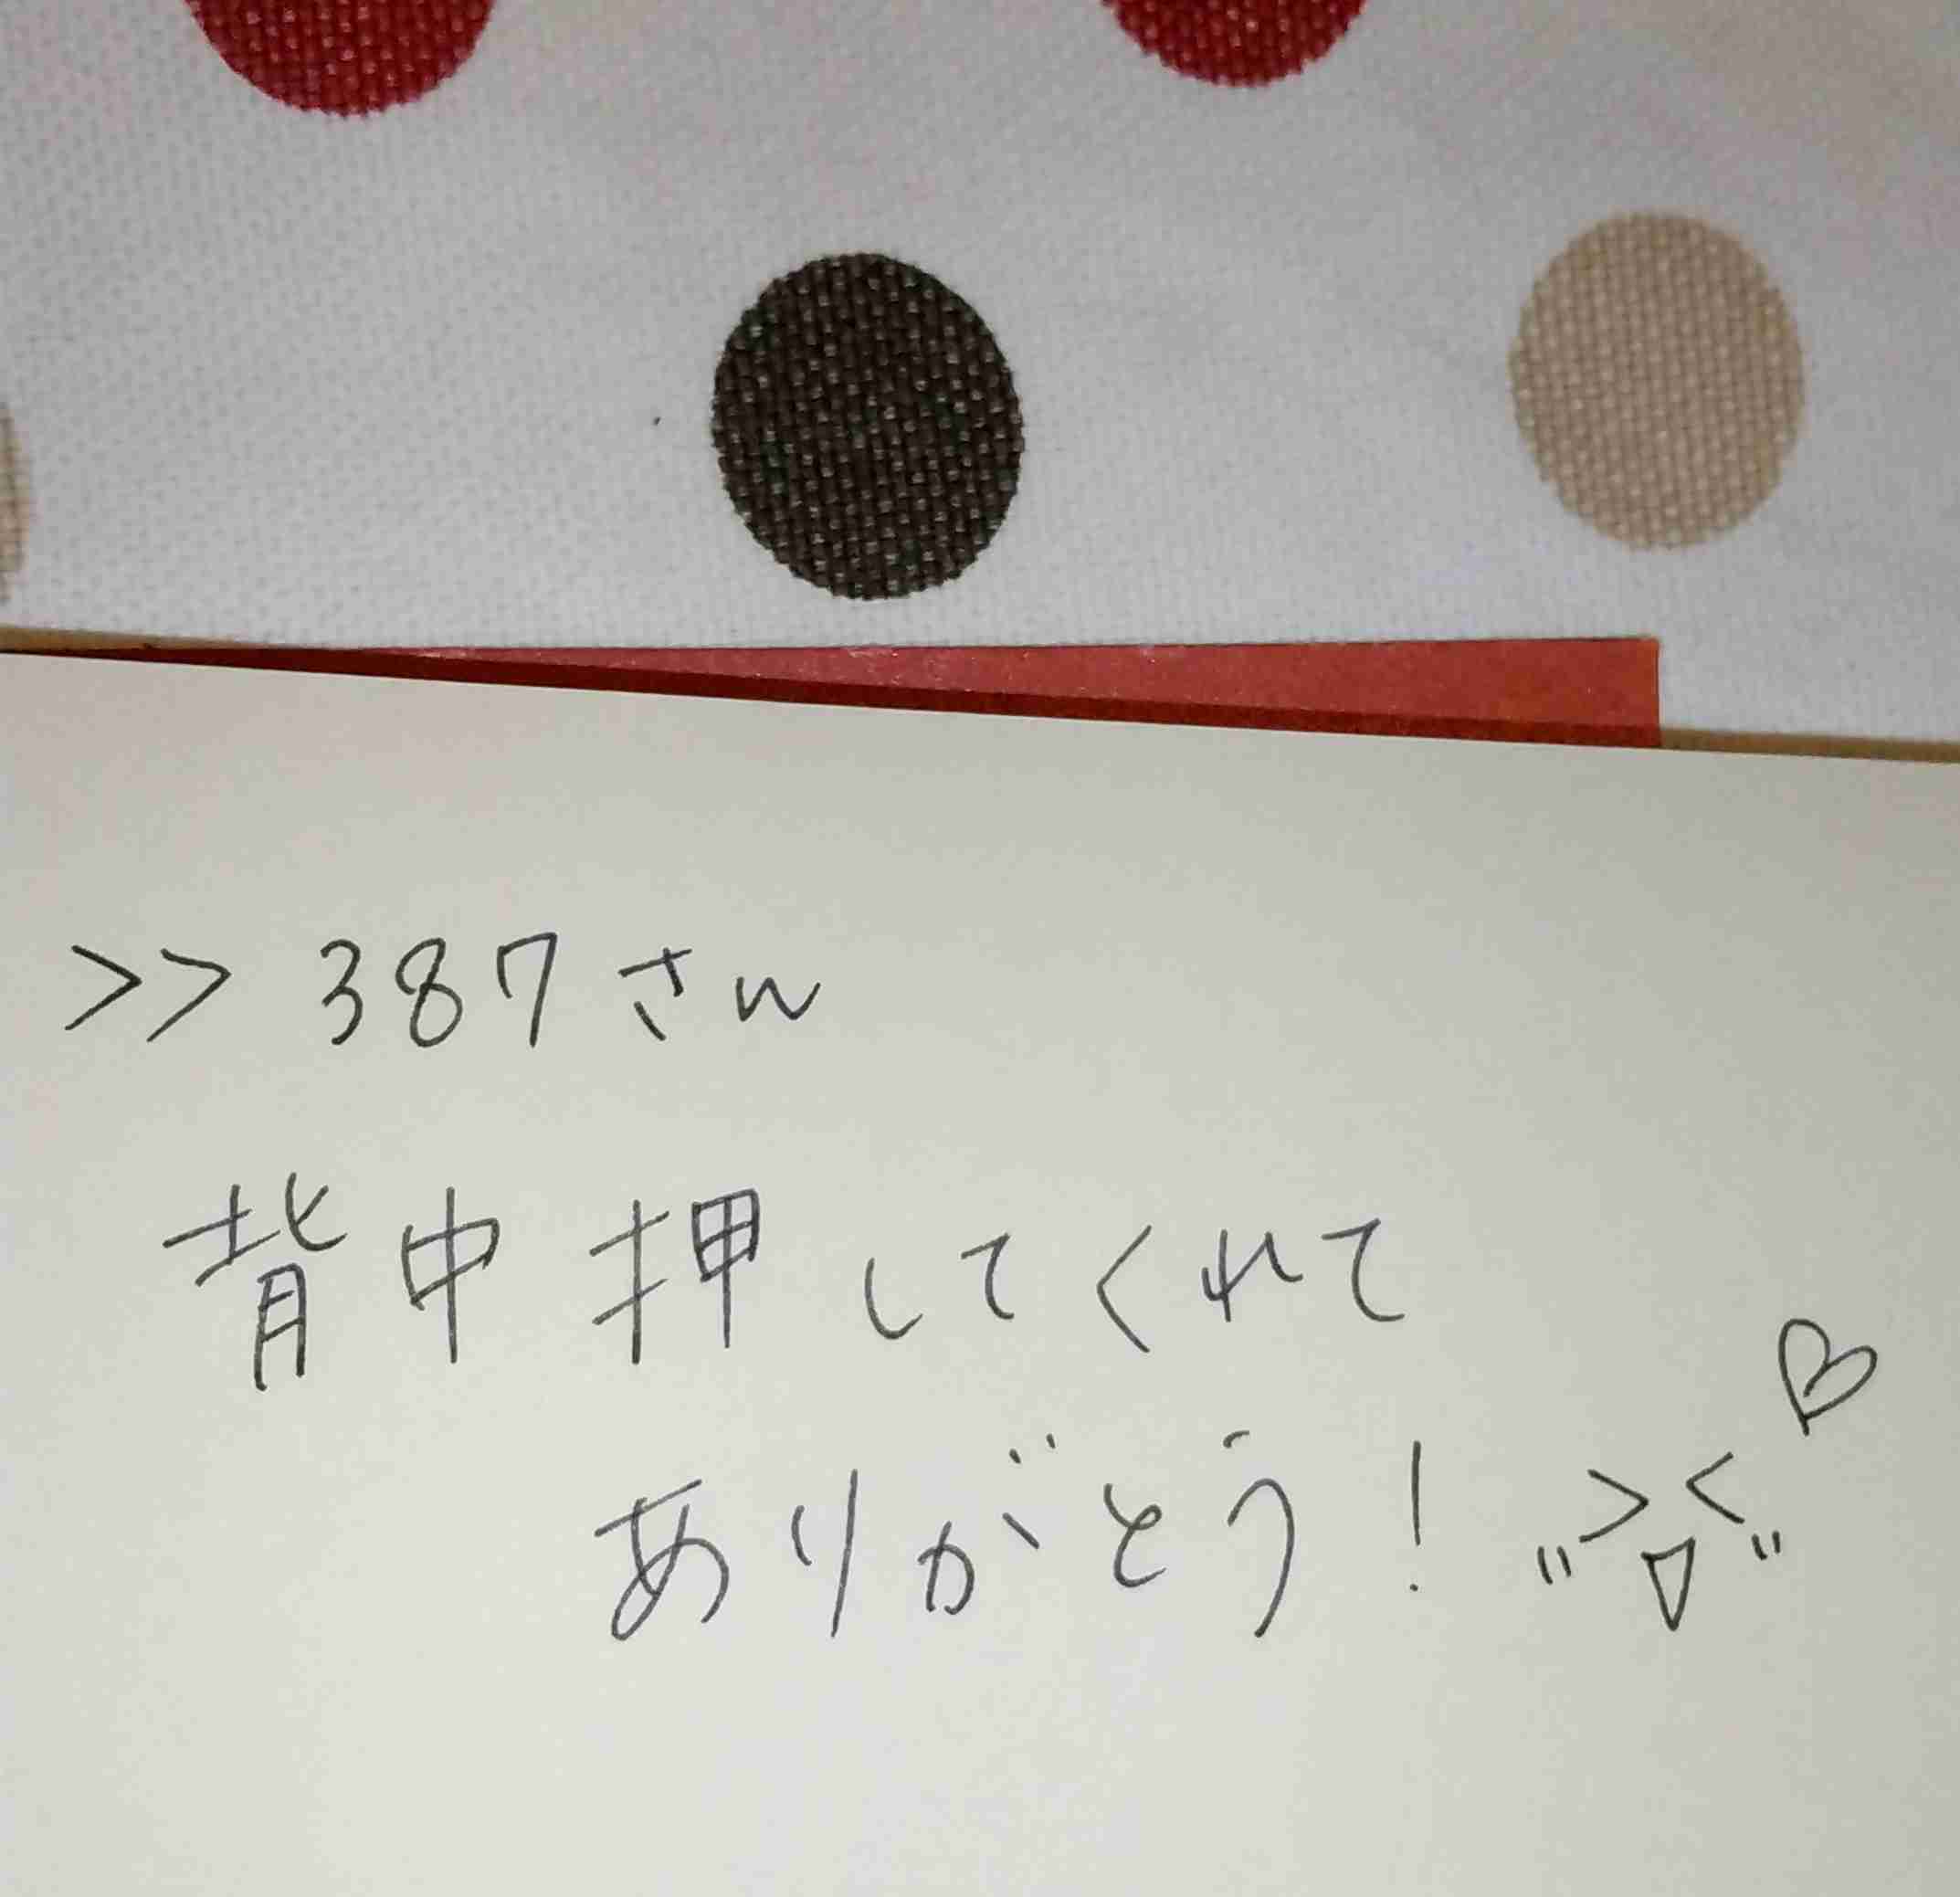 >> 387さん
背中押してくれて
ありがとう! "＞▽＜"♡